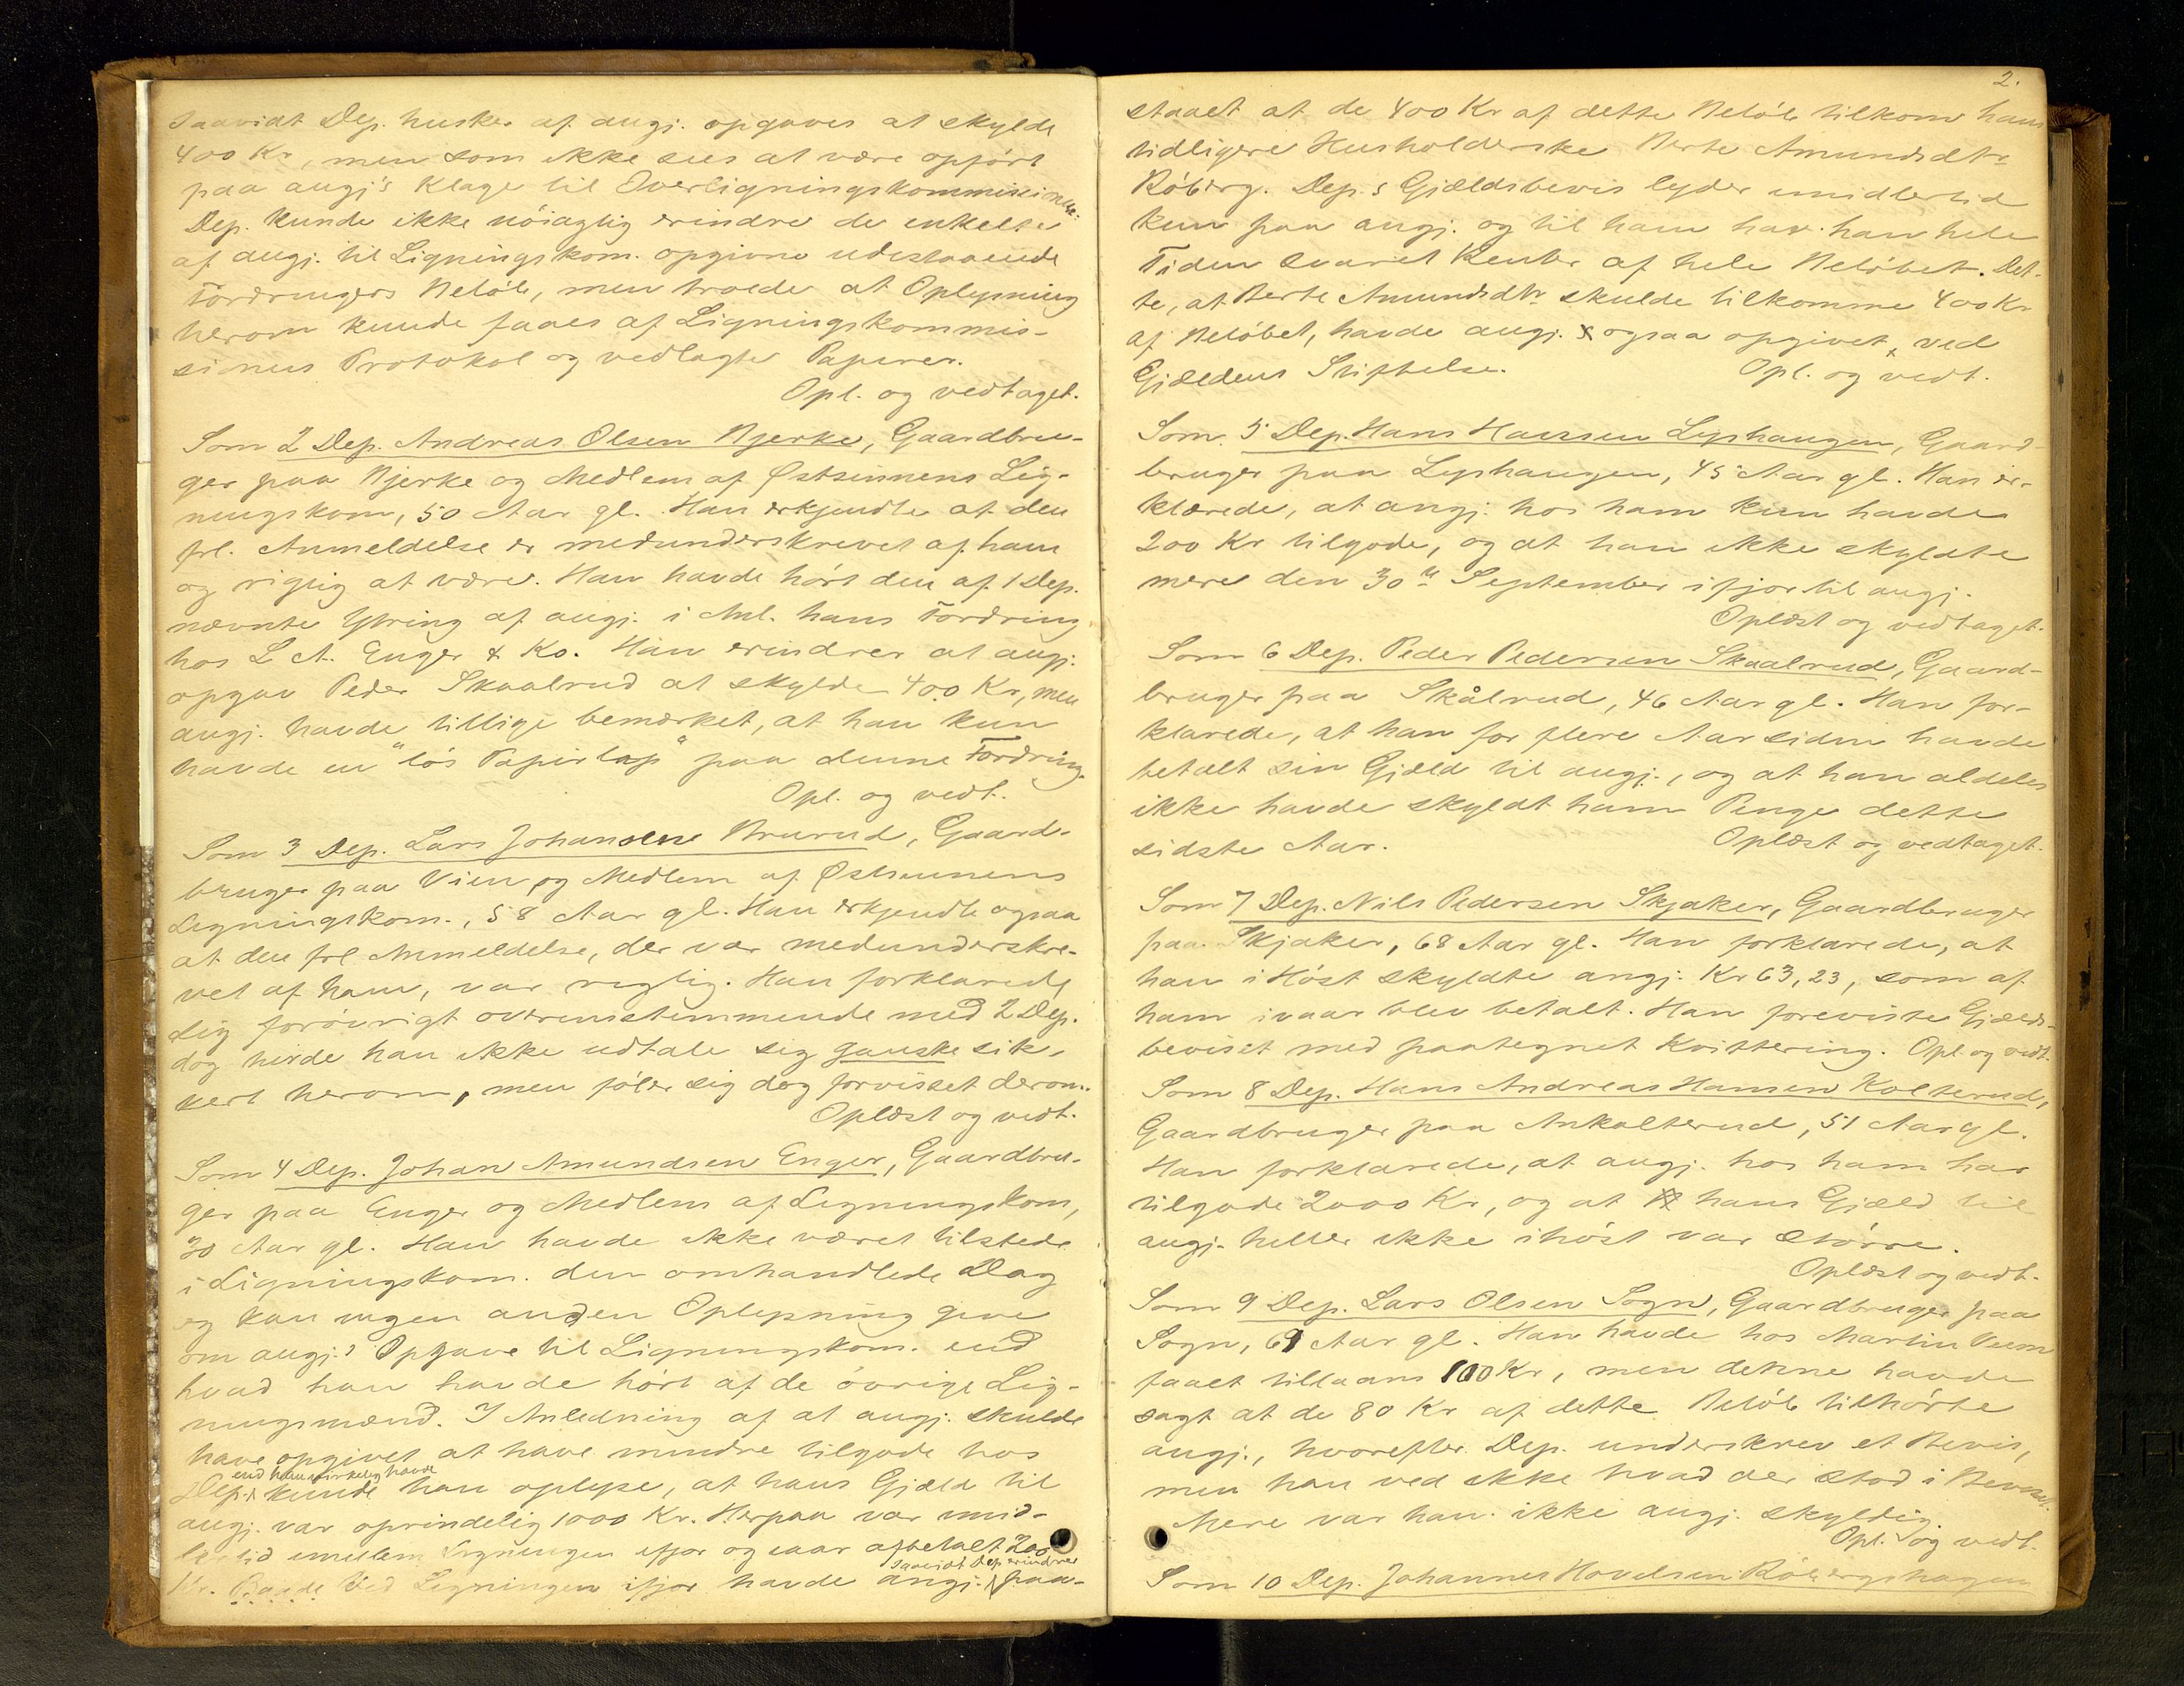 saavidt Dep. husker af angj. opgaves at skylde
400 Kr, men som ikke sees at være opført
paa angj's Klage til Overligningskommissionen.
Dep. kunde ikke nøiagtig erindre de enkelte
af angj. til Ligningskom. opgivne udestaaende
Fordringers Beløb, men troede at Oplysning
herom kunde faaes af Ligningskommis-
sionens Protokol og vedlagte Papirer.
Opl. og vedtaget.
Som 2 Dep. Andreas Olsen Bjerke, Gaardbru-
ger paa Bjerke og Medlem af Østsinnens Lig-
ningskom, 50 Aar gl. Han erkjendte at den
frl. Anmeldelse er medunderskrevet af ham
og rigtig at være. Han havde hørt den af 1 Dep.
nævnte Ytring af angj. i Anl. hans Fordring
hos L A. Enger & Ko. Han erindrer at angj.
opgav Peder Skaalrud at skylde 400 Kr, men
angj. havde tillige bemærket, at han kun
havde en "løs Papirlap" paa denne Fordring.
Opl. og vedt.
Som 3 Dep. Lars Johansen Brurud, Gaard-
bruger paa Vien og Medlem af Østsinnens
Ligningskom., 58 Aar gl. Han erkjendte ogsaa
at den frl Anmeldelse, der var medunderskre-
vet af ham, var rigtig. Han forklarede
sig forøvrigt overensstemmende med 2 Dep.
dog turde han ikke udtale sig ganske sik-
kert herom, men føler sig dog forvisset derom.
Oplæst og vedt.
Som 4 Dep. Johan Amundsen Enger, Gaardbru-
ger paa Enger og Medlem af Ligningskom,
30 Aar gl. Han havde ikke været tilstede
i Ligningskom. den omhandlede Dag
og kan ingen anden Oplysning give
om angj.s Opgave til Ligningskom. end
hvad han havde hørt af de øvrige Lig-
ningsmænd. I Anledning af at angj. skulde
have opgivet at have mindre tilgode hos
end han virkelig havde
Dep. kunde han oplyse, at hans Gjæld til
angj. var oprindelig 1000 Kr. Herpaa var imid-
lertid imellem Ligningen ifjor og iaar afbetalt 200
saavidt Dep erindrer
Kr. Baade Ved Ligningen ifjor havde angj. paa-
2.
staaet at de 400 Kr af dette Beløb tilkom hans
tidligere Husholderske Berte Amundsdtr
Røberg. Dep.s Gjældsbevis lyder imidlertid
kun paa angj. og til ham har han hele
Tiden svaret Renter af hele Beløbet. Det-
te, at Berte Amundsdtr skulde tilkomme 400 Kr
af Beløbet, havde angj. ogsaa opgivet ved
Gjældens Stiftelse. Opl. og vedt.
Som 5 Dep. Hans Hansen Lyshaugen, Gaard-
bruger paa Lyshaugen, 45 Aar gl. Han er-
klærede, at angj. hos ham kun havde
200 Kr tilgode, og at han ikke skyldte
mere den 30te September ifjor til angj.
Oplæst og vedtaget.
Som 6 Dep. Peder Pedersen Skaalrud, Gaard-
bruger paa Skålrud, 46 Aar gl. Han for-
klarede, at han for flere Aar siden havde
betalt sin Gjæld til angj., og at han aldeles
ikke havde skyldt ham Penge dette
sidste Aar. Oplæst og vedtaget.
Som 7 Dep. Nils Pedersen Skjaker, Gaardbruger
paa Skjaker, 68 Aar gl. Han forklarede, at
han i Høst skyldte angj. Kr 63,23, som af
ham ivaar blev betalt. Han foreviste Gjælds-
beviset med paategnet Kvittering. Opl. og vedt.
Som 8 Dep. Hans Andreas Hansen Kolterud,
Gaardbruger paa Ankolterud, 51 Aar gl.
Han forklarede, at angj. hos ham har
tilgode 2000 Kr, og at hans Gjæld til
angj. heller ikke ihøst var større.
Oplæst og vedt.
Som 9 Dep. Lars Olsen Sogn, Gaardbruger paa
Sogn, 69 Aar gl. Han havde hos Martin Veum
faaet tillaans 100 Kr, men denne havde
sagt at de 80 Kr af dette Beløb tilhørte
angj., hvorefter Dep. underskrev et Bevis,
men han ved ikke hvad der stod i Beviset.
Mere var han ikke angj. skyldig.
Opl. og vedt.
Som 10 Dep. Johannes Hovelsen Røbergshagen